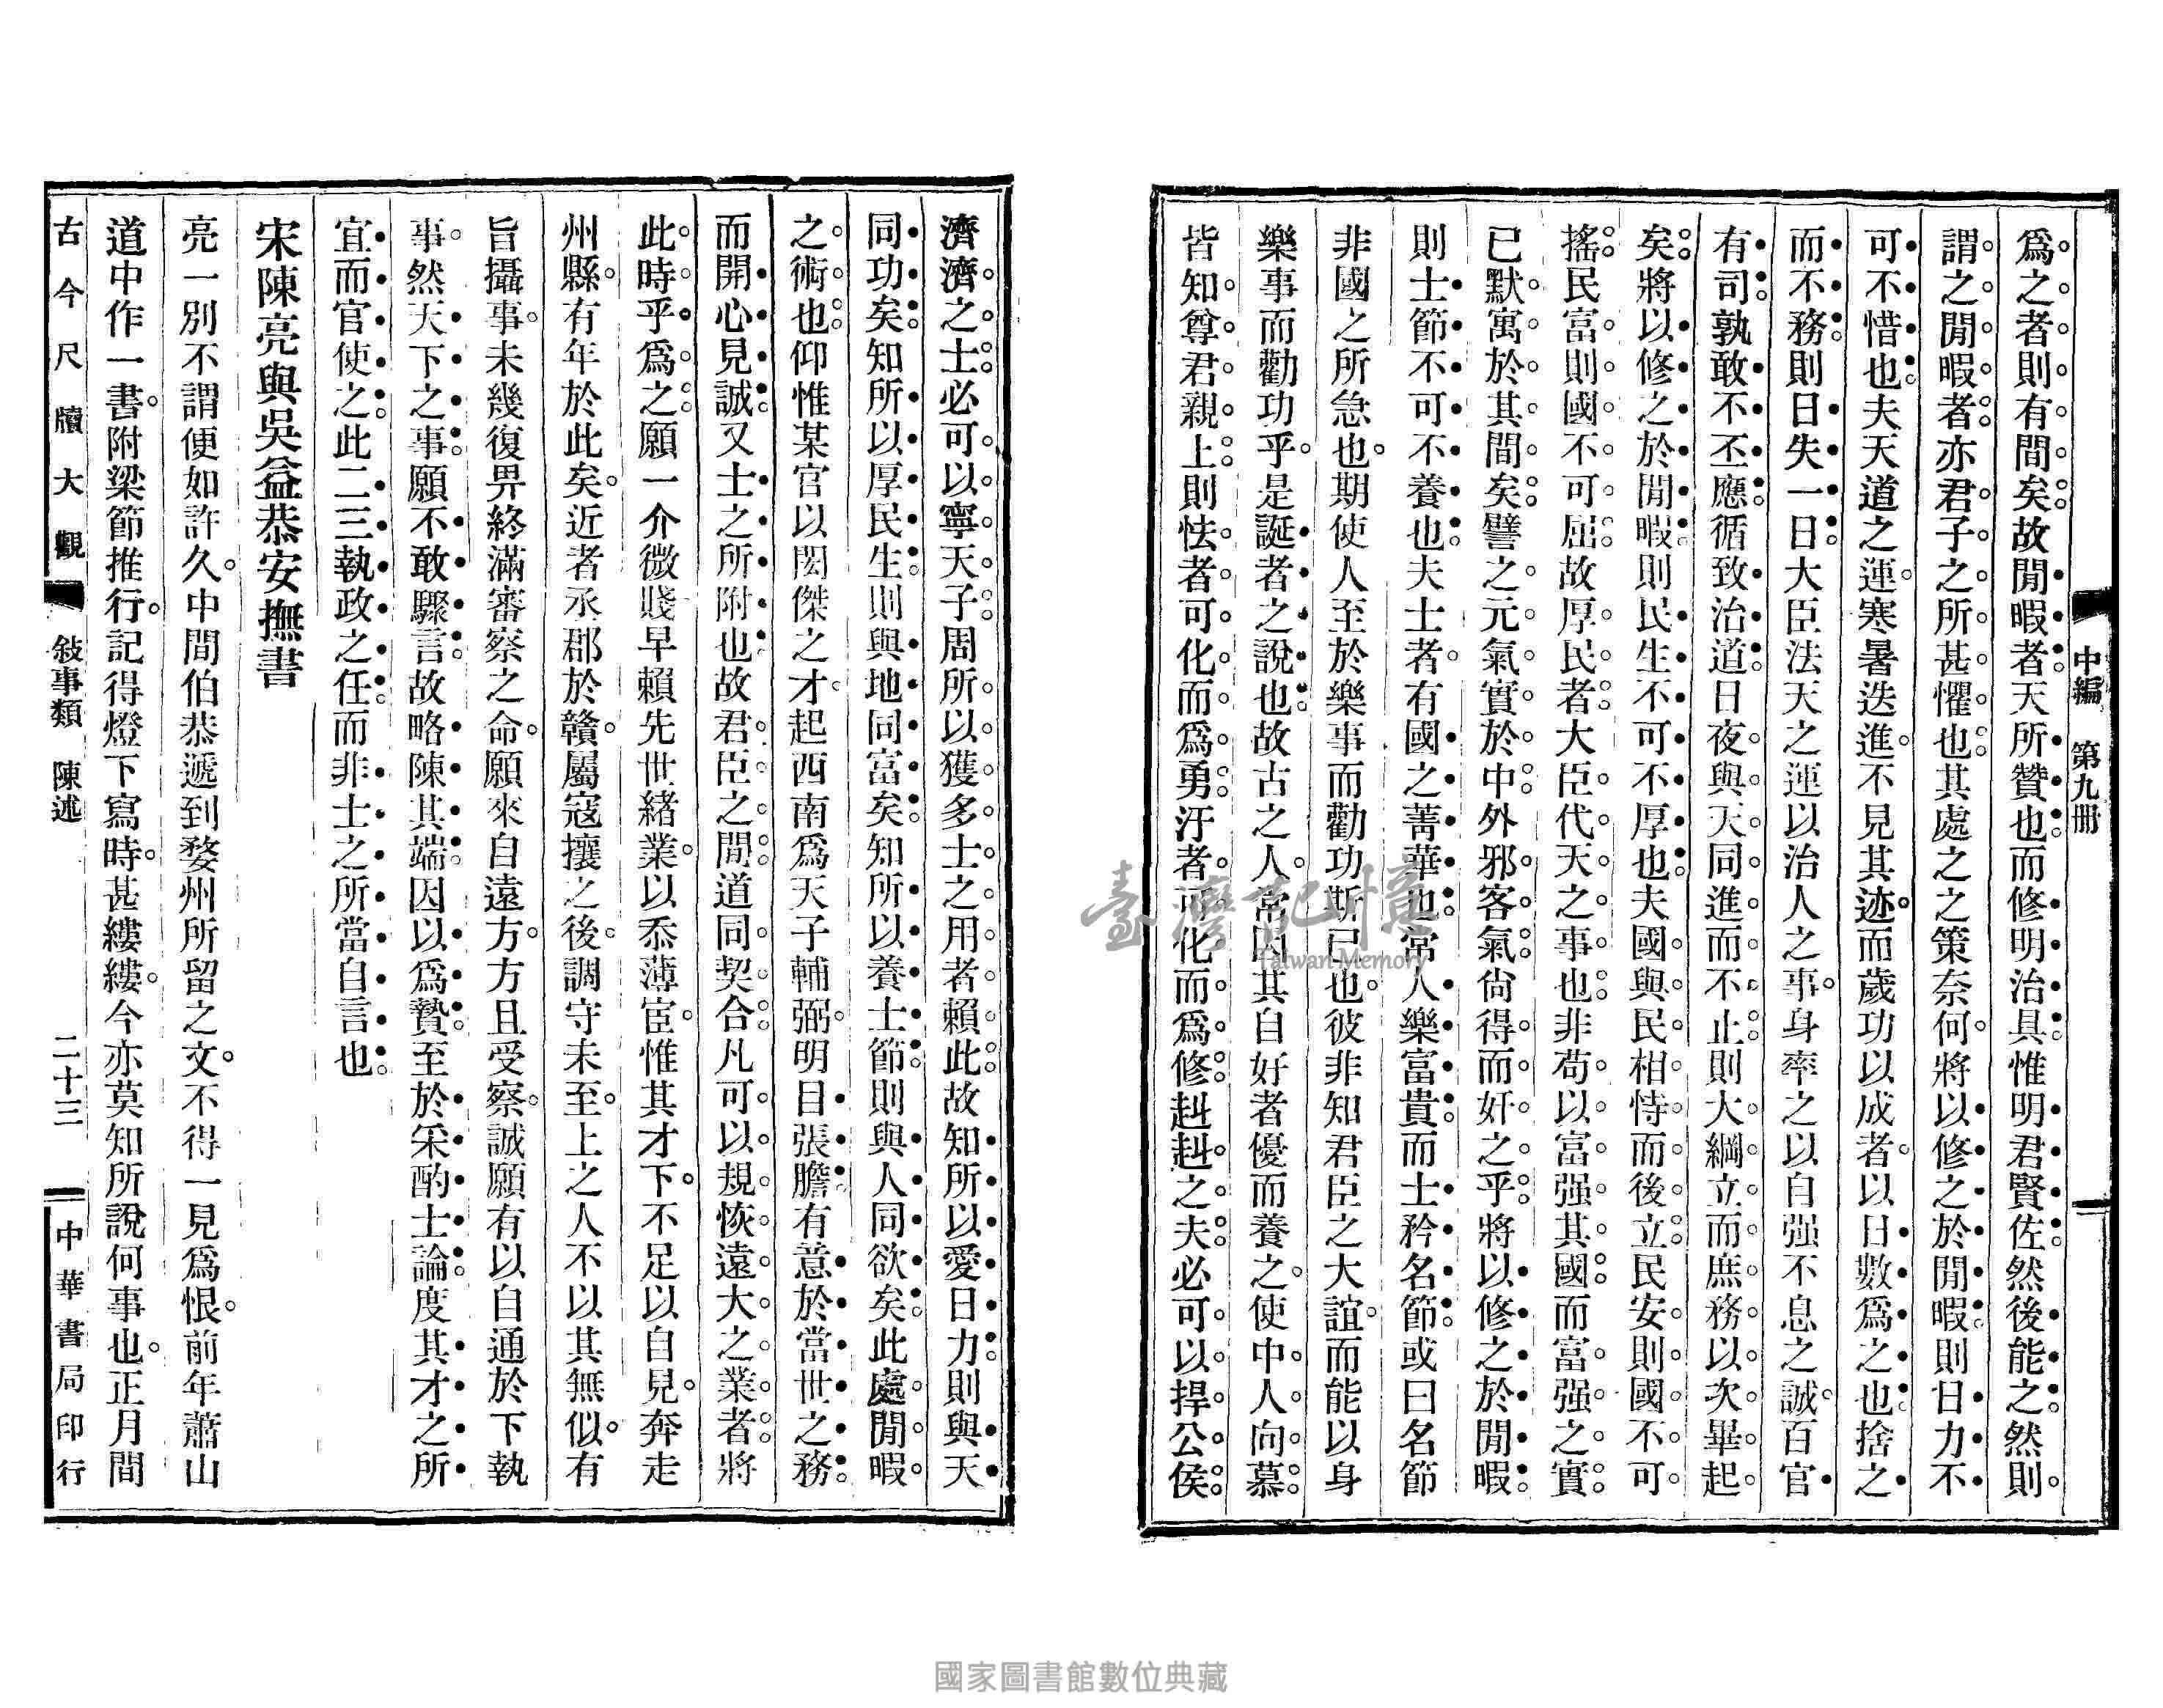 中編　第九冊
爲之者則有間矣故閒暇者天所贊也而修明治具惟明君賢佐然後能之然則
謂之閒暇者亦君子之所甚懼也其處之之策奈何將以修之於閒暇則日力不
可不惜也夫天道之運寒暑迭進不見其迹而歲功以成者以日數爲之也捨之
而不務則日失一日大臣法天之運以治人之事身率之以自强不息之誠百官
有司孰敢不丕應循致治道日夜與天同進而不止則大綱立而庶務以次畢起
矣將以修之於閒暇則民生不可不厚也夫國與民相恃而後立民安則國不可
搖民富則國不可屈故厚民者大臣代天之事也非苟以富强其國而富强之實
已默寓於其間矣譬之元氣實於中外邪客氣尙得而奸之乎將以修之於閒暇
則士節不可不養也夫士者有國之菁華也常人樂富貴而士矜名節或曰名節
非國之所急也期使人至於樂事而勸功斯已也彼非知君臣之大誼而能以身
樂事而勸功乎是誕者之說也故古之人常因其自好者優而養之使中人向慕
皆知尊君親上則怯者可化而爲勇汙者可化而爲修赳赳之夫必可以捍公侯
濟濟之士必可以寧天子周所以獲多士之用者賴此故知所以愛日力則與天
同功矣知所以厚民生則與地同富矣知所以養士節則與人同欲矣此處閒暇
之術也仰惟某官以閎傑之才起西南爲天子輔弼明目張膽有意於當世之務
而開心見誠又士之所附也故君臣之間道同契合凡可以規恢遠大之業者將
此時乎爲之願一介微賤早賴先世緒業以忝薄宦惟其才下不足以自見奔走
州縣有年於此矣近者丞郡於贛屬寇攘之後調守未至上之人不以其無似有
旨攝事未幾復畀終滿審察之命願來自遠方方且受察誠願有以自通於下執
事然天下之事願不敢驟言故略陳其端因以爲贄至於采酌士論度其才之所
宜而官使之此二三執政之任而非士之所當自言也
宋陳亮與吳益恭安撫書
亮一別不謂便如許久中間伯恭遞到婺州所留之文不得一見爲恨前年蕭山
道中作一書附梁節推行記得燈下寫時甚縷縷今亦莫知所說何事也正月間
古今尺牘大觀　敍事類　陳述　二十三　中華書局印行
臺灣記憶
Taiwan Memory
國家圖書館數位典藏